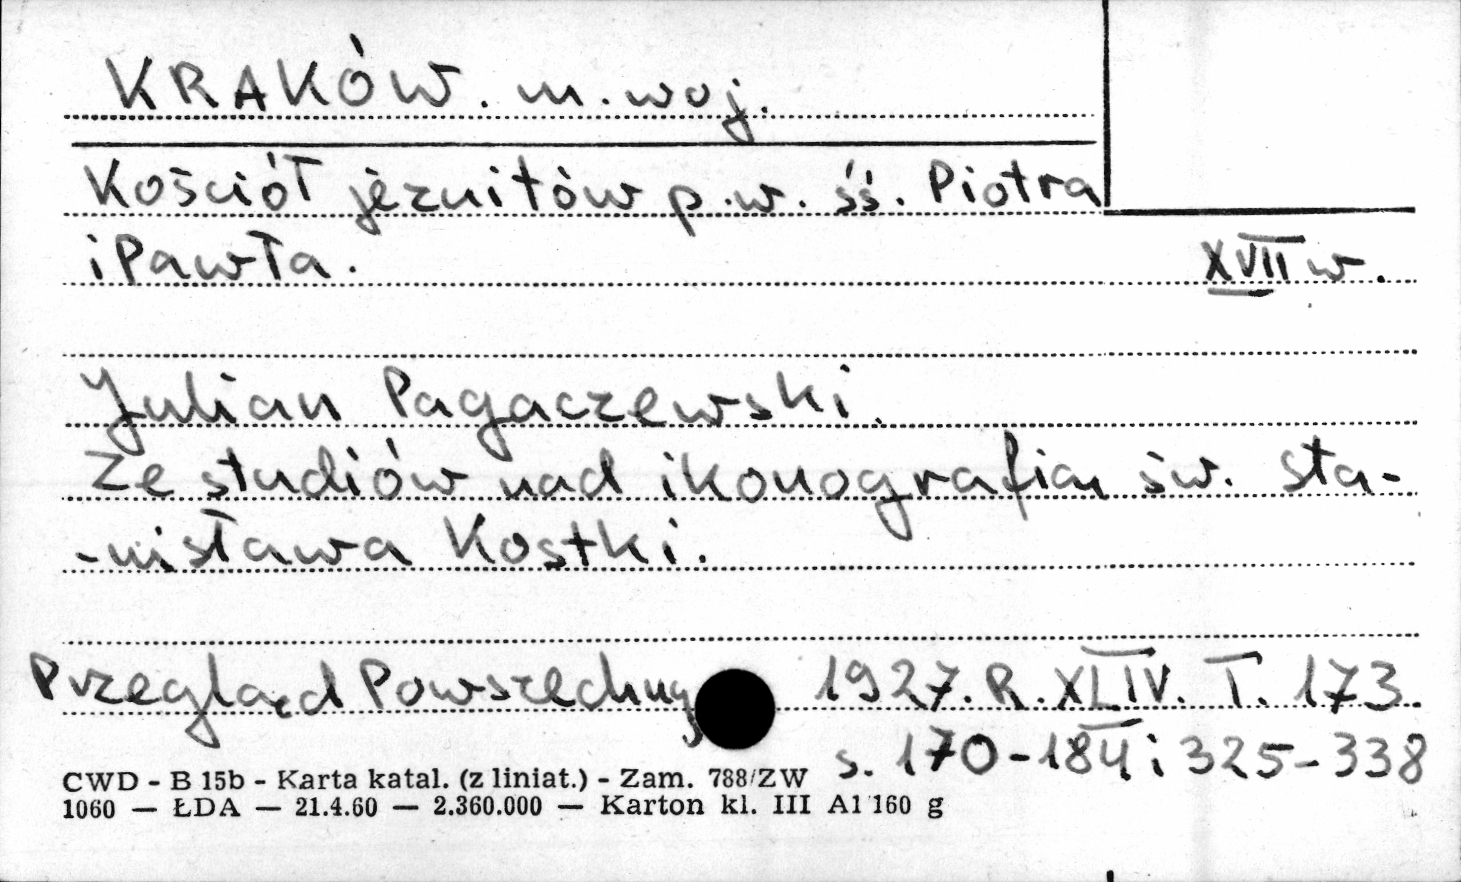 KRAKÓW. m. woj.
Kościół jezuitów p.w. śś. Piotra
i Pawła.
XVII w.
Julian Pagaczewski.
Ze studiów nad ikonografią św. Sta-
-nisława Kostki.
Przegląd Powszechny 1927. R. XLIV. T. 173.
s. 170-184 i 325-338
CWD - B 15b - Karta katal. (z liniat.) - Zam. 788/ZW
1060 — ŁDA — 21.4.60 — 2.360.000 — Karton kl. III A1 160 g